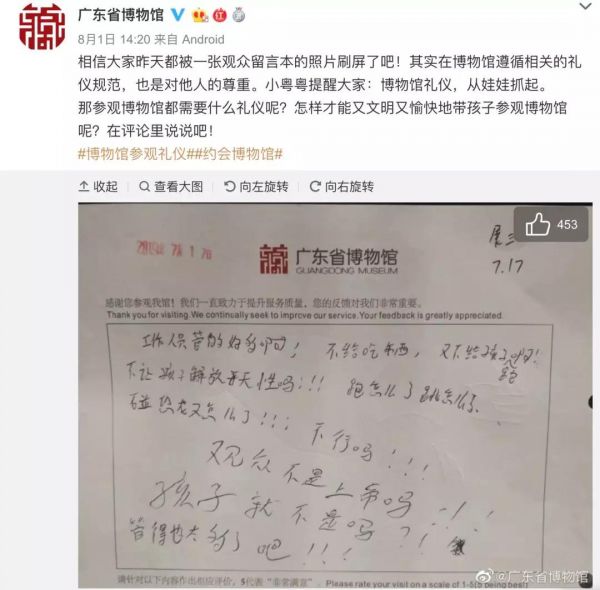 广东省博物馆
8月1日 14:20 来自 Android
相信大家昨天都被一张观众留言本的照片刷屏了吧！其实在博物馆遵循相关的礼
仪规范，也是对他人的尊重。小粤粤提醒大家：博物馆礼仪，从娃娃抓起。
那参观博物馆都需要什么礼仪呢？怎样才能又文明又愉快地带孩子参观博物馆
呢？在评论里说说吧！
#博物馆参观礼仪##约会博物馆#
收起 查看大图 向左旋转 向右旋转
453
7.17
广东省博物馆
GUANGDONG MUSEUM
感谢您参观我馆！我们一直致力于提升服务质量，您的反馈对我们非常重要。
Thank you for visiting.We continually seek to improve our service.Your feedback is greatly appreciated.
工作人员管的好多啊！ 不给吃东西，又不给孩子跑啊！
不让孩子解放天性吗！！！ 跑怎么了跳怎么了
碰恐龙又怎么了！！！
不行吗！！！
观众不是上帝吗！！！
孩子就不是吗？！！
管得也太多了吧！！！
请针对以下内容作出相应评价，5代表“非常满意”
Please rate your visit on a scale of 1-5(5 being best)
@广东省博物馆